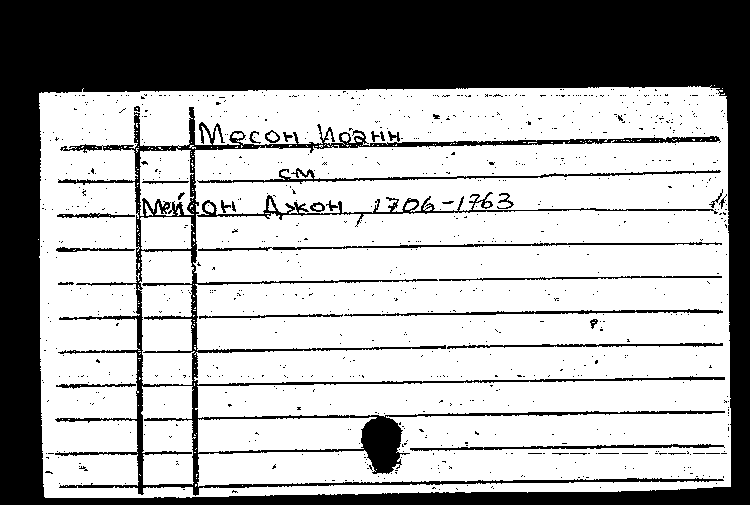 Масон, Иоанн
см
Мейсон Джон, 1706-1763